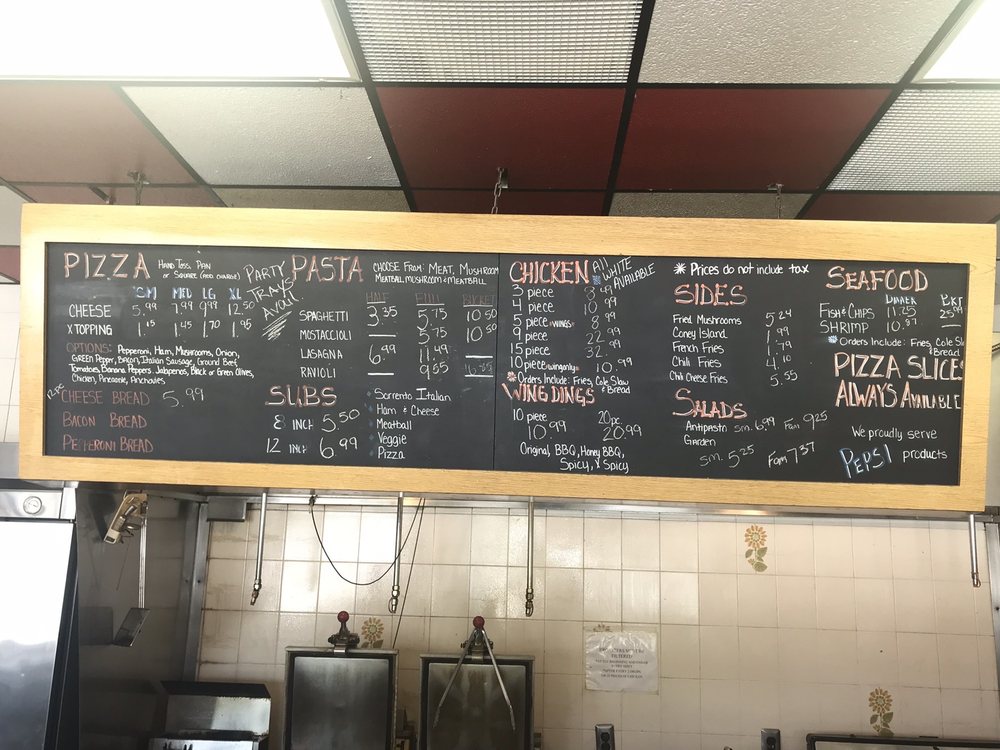 PIZZA
HAND TOSS, PAN
OR SQUARE (ADD CHARGE)
SM MED LG XL
CHEESE 5.99 7.99 9.99 12.50
X TOPPING 1.15 1.45 1.70 1.95
OPTIONS: Pepperoni, Ham, Mushrooms, Onion,
GREEN Pepper, Bacon, Italian Sausage, Ground Beef,
Tomatoes, Banana Peppers, Jalapenos, Black or Green Olives,
Chicken, Pineapple, Anchovies
12 pc
CHEESE BREAD 5.99
BACON BREAD
PEPPERONI BREAD
PARTY
TRAYS
AVAIL
PASTA
CHOOSE FROM: MEAT, MUSHROOM
MEATBALL, MUSHROOM & MEATBALL
HALF FULL BUCKET
SPAGHETTI 3.35 5.75 10.50
MOSTACCIOLI 5.75 10.50
LASAGNA 6.99 11.49
RAVIOLI 9.65
SUBS
8 INCH 5.50
12 INCH 6.99
Sorrento Italian
Ham & Cheese
Meatball
Veggie
Pizza
CHICKEN
All
WHITE
AVAILABLE
3 piece 8.49
4 piece 10.99
5 piece WINGS 8.99
9 piece 22.99
15 piece 32.99
10 piece wing only 10.99
Orders Include: Fries, Cole Slaw
& Bread
WING DINGS
10 piece 20pc
10.99 20.99
Original, BBQ, Honey BBQ,
Spicy, X Spicy
Prices do not include tax
SIDES
Fried Mushrooms 5.24
Coney Island 1.99
French Fries 1.79
Chili Fries 4.10
Chili Cheese Fries 5.55
SALADS
Antipasto sm. 6.99 Fam 9.25
Garden
sm. 5.25 Fam 7.37
SEAFOOD
DINNER
FISH & CHIPS 11.25
SHRIMP 10.87
Orders Include: Fries, Cole Sla
& Bread
PIZZA SLICES
ALWAYS AVAILABLE
We proudly serve
PEPSI products